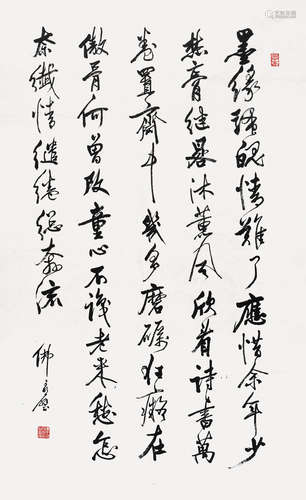 墨缘瑰魄情难了应惜余年少
焚膏继晷沐薰风欣看诗书万
卷置斋中几多磨砺狂癫在
傲骨何曾改童心不识老来愁怎
奈纤情缱绻总奔流
佛